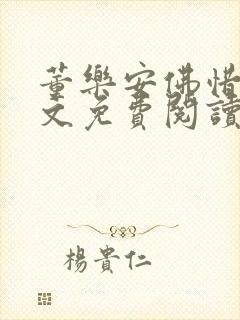 董樂安佛惜
文免費閱讀
楊貴仁